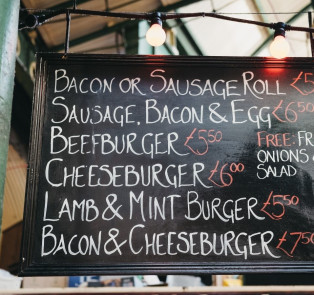 Bacon or Sausage Roll £5
Sausage, Bacon & Egg £6.50
Beefburger £5.50
Cheeseburger £6.00
Lamb & Mint Burger £5.50
Bacon & Cheeseburger £7.50
FREE: FR
ONIONS &
SALAD